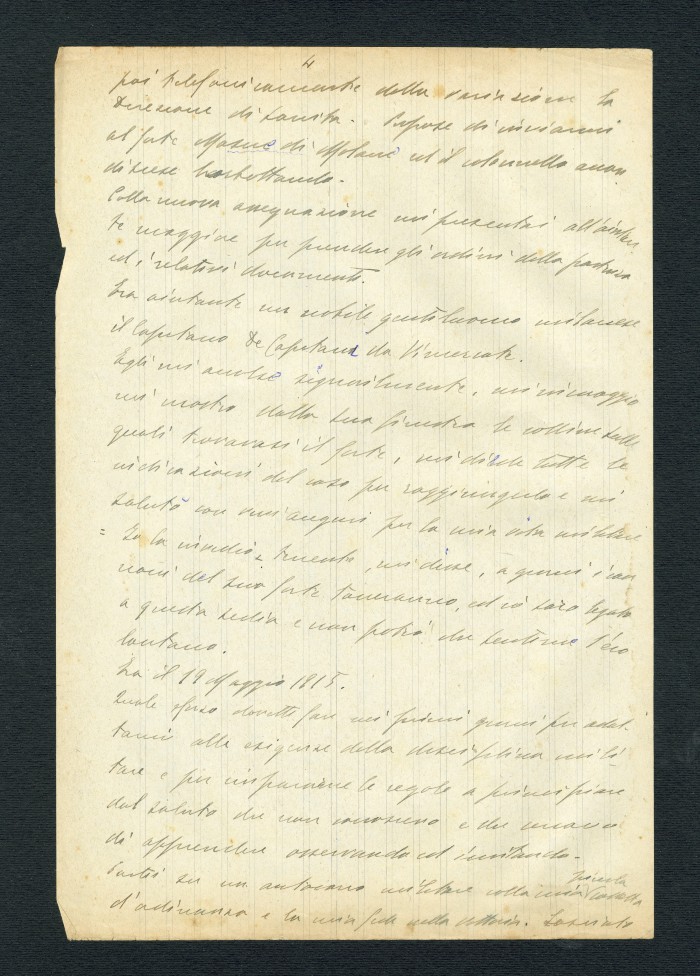 4
poi telefonicamente della variazione la
Direzione di Sanità. Propose di inviarmi
al forte Masuè di Molane ed il colonnello accon
discese borbottando.
Colla nuova assegnazione mi presentai all'aiutan
te maggiore per prendere gli ordini della partenza
ed i relativi documenti.
Era aiutante un nobile gentiluomo milanese
il Capitano De Capitani da Vimercate.
Egli mi accolse signorilmente, mi incoraggiò
mi mostrò dalla sua finestra le colline sulle
quali trovavasi il forte, mi diede tutte le
indicazioni del caso per raggiungerlo e mi
salutò con vivi auguri per la mia vita militare
= Io la invidio tenente, mi disse, a giorni i can
noni del suo forte tuoneranno, ed io sarò legato
a questa sedia e non potrò che sentirne l'eco
lontano.
Era il 19 Maggio 1915.
Quale sforzo dovetti fare nei primi giorni per adat
tarmi alle esigenze della disciplina mili
tare e per impararne le regole a principiare
dal saluto che non conoscevo e che cercavo
di apprendere osservando ed imitando.
Partii su un autocarro militare colla mia piccola cassetta
d'ordinanza e la mia fede nella vittoria. Lasciato